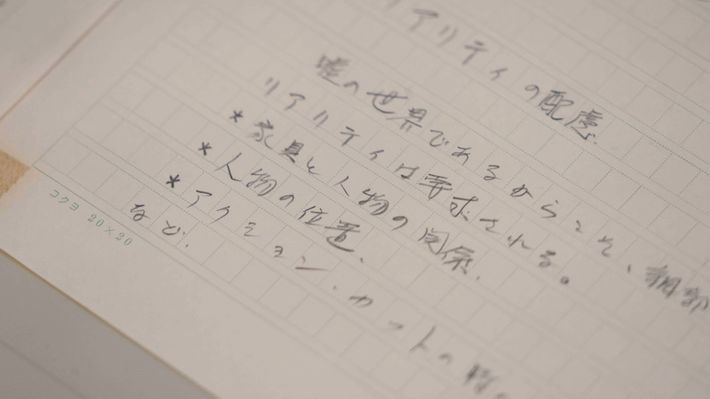 リアリティの配慮.
嘘の世界であるからこそ、細部
リアリティは要求される。
*家具と人物の関係.
*人物の位置.
*アクション.カットの時
など.
コクヨ 20×20